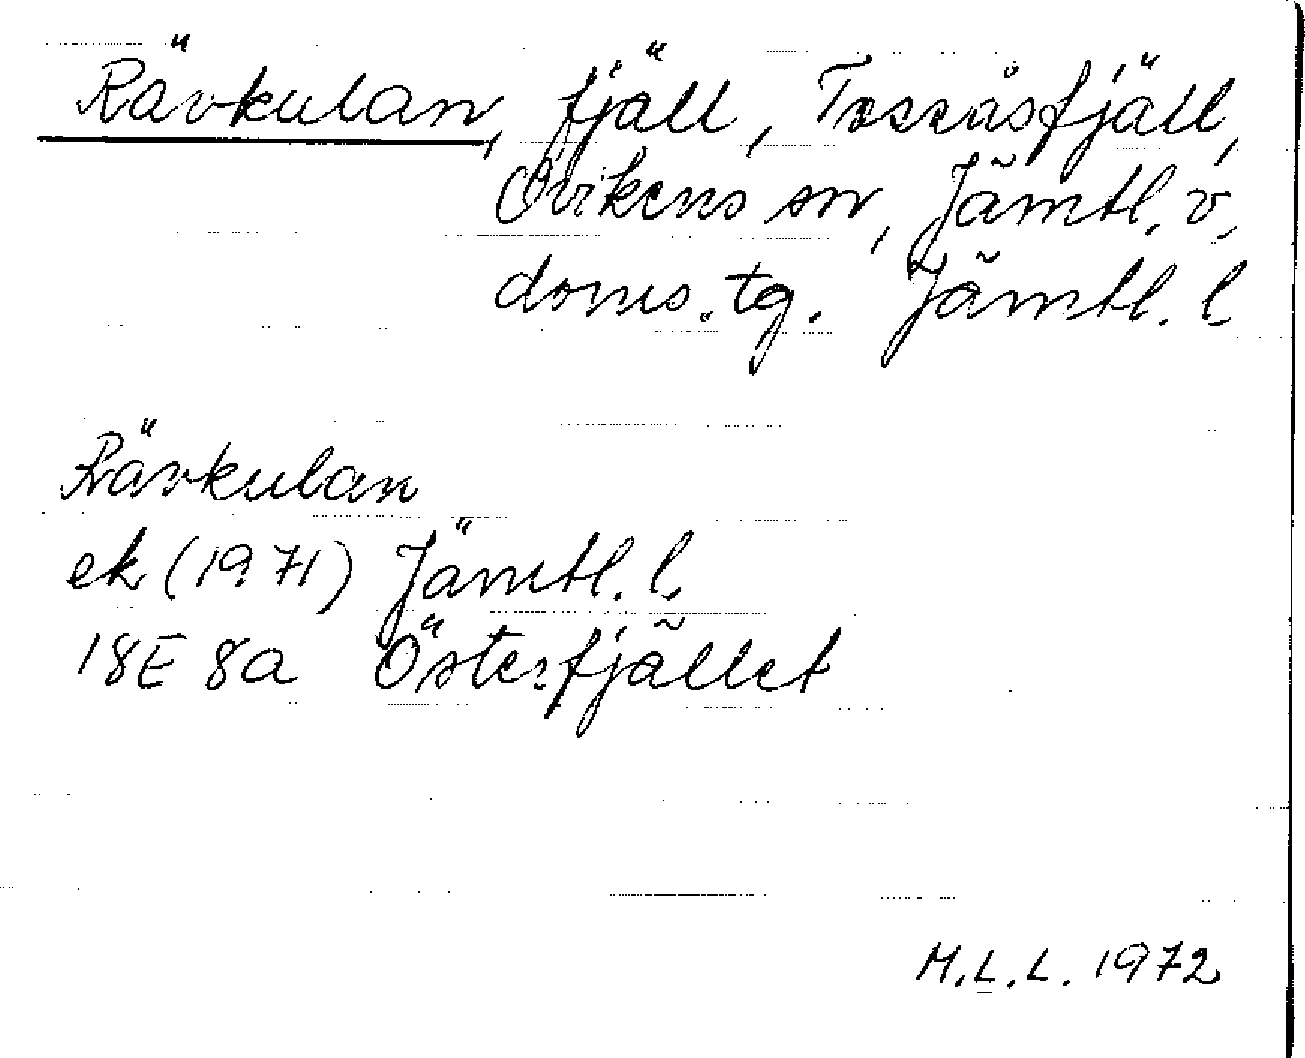 Rävkulan, fjäll, Tossåsfjäll,
Ovikens sn, Jämtl. v.
doms. tg. Jämtl. l
Rävkulan
ek (1971) Jämtl. l.
18E 8a Österfjället
M.L.L. 1972